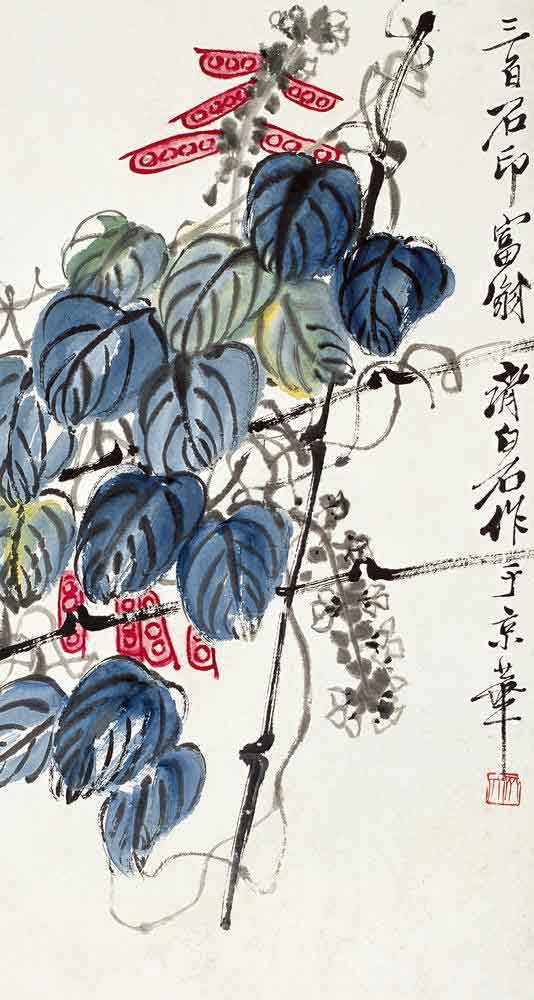 三百石印富翁 齊白石作于京華